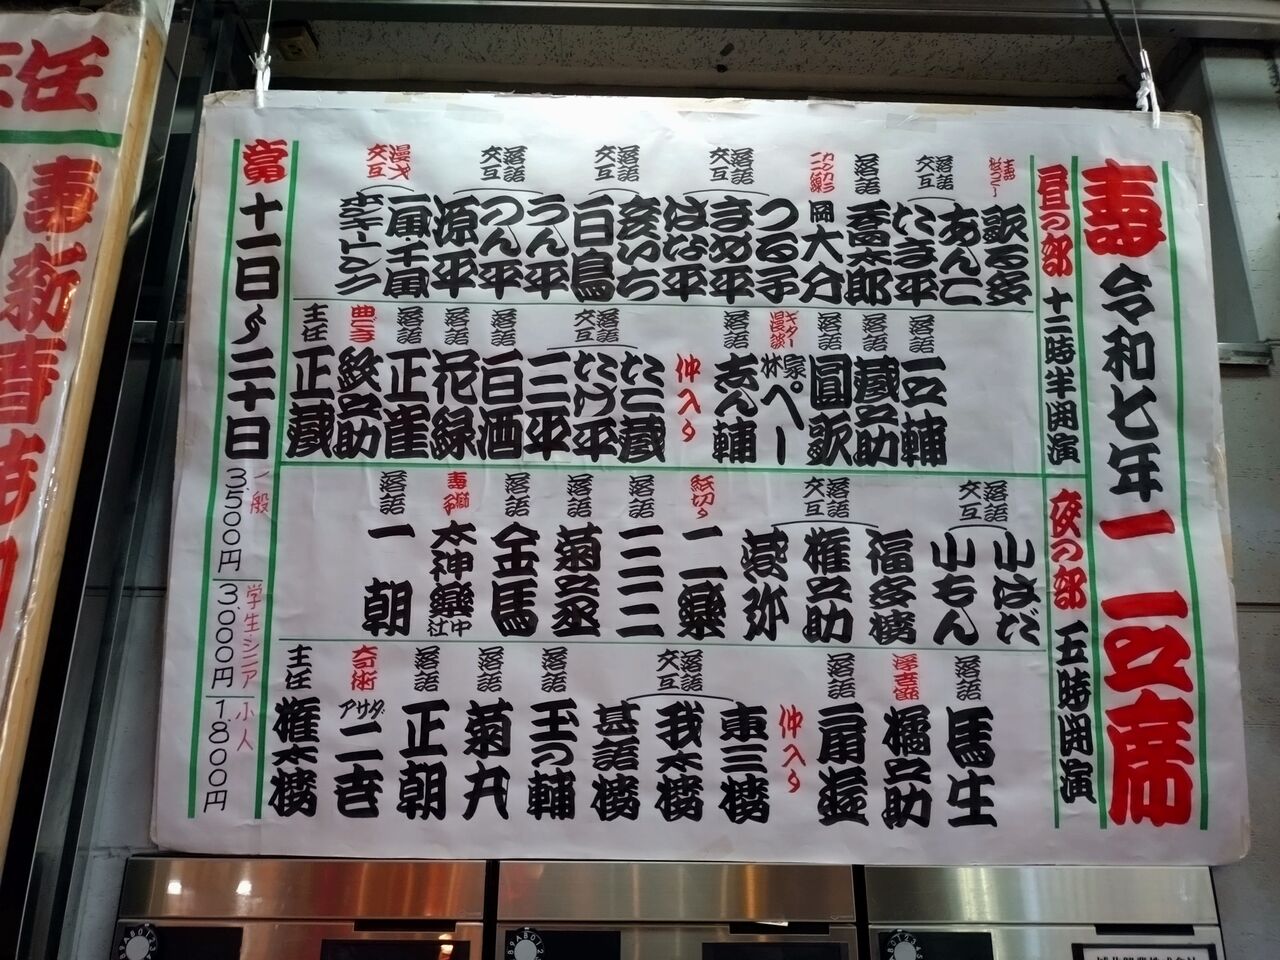 寿 令和七年 一 二之席
昼の部 十二時半開演
歌る多
落語 交互
あんこ
たき平
落語
喬太郎
カンカラ三線
岡大介
つる子
落語 交互
きめ平
はな平
落語 交互
奕いち
一白鳥
落語 交互
うん平
つん平
源平
漫才 交互
一風・千風
ホンキートンク
落語
一之輔
落語
蔵之助
落語
圓歌
ギター漫談
林家。ぺー
落語
志ん輔
仲入り
落語 交互
たこ蔵
たけ平
三平
落語
百酒
落語
花緑
落語
正雀
曲ごま
紋之助
主任
正蔵
夜の部 五時開演
小はだ
落語 交互
小もん
福多楼
落語 交互
権之助
燕弥
紙切り
二楽
落語
三三
落語
菊之丞
落語
金馬
寿獅子
太神楽社中
落語
一朝
落語
馬生
浮世節
橘之助
落語
扇遊
仲入り
東三楼
落語 交互
我太楼
甚語楼
落語
玉の輔
落語
菊丸
落語
正朝
奇術
アサダ二世
主任
権太楼
当 十一日〜二十日
一般
3,500円
学生シニア
3,000円
小人
1,800円
主任
寿新春